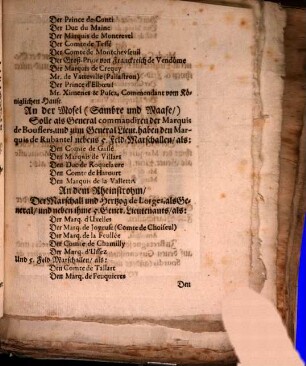 Der Prince de Conti
Der Duc du Maine
Der Marquis de Montrevel
Der Comte de Tesse
Der Comte de Montchevseuil
Der Groß-Prior von Franckreich de Vendôme
Der Marquis de Crequy
Mr. de Vatteville (Pallastron)
Der Prince d'Elbœuf
Mr. Ximenes de Police, Commendant vom Kö-
niglichen Hause.
An der Mosel (Sambre und Maase/)
Solle als General commandiren der Marquis
de Boufflers, und zum General Lieut. haben den Mar-
quis de Rubantel nebens 5. Feld-Marschallen/ als:
Den Comte de Gasse
Den Marquis de Villars
Den Duc de Roquelaure
Den Comte de Harcourt
Den Marquis de la Vallette
An dem Rheinstrohm/
Der Marschall und Hertzog de Lorges, als Ge-
neral/ und neben ihme 5. Gener. Lieutenants, als:
Der Marq. d'Uxelles
Der Marq. de Joyeuse (Comte de Choiseul)
Der Marq. de la Feullée
Der Comte de Chamilly
Der Marq. d'Uffez
Und 5. Feld-Marschallen/ als:
Den Comte de Tallart
Den Marq. de Feuquieres
Den